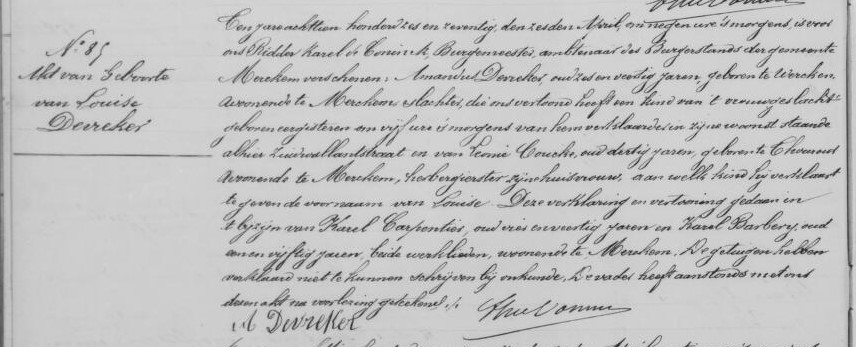 N.º 85
Akt van Geboorte
van Louise
Devreker
Een jare achttien honderd zes en zeventig, den zesden April, om negen ure 's morgens, is voor
ons Ridder Karel de Coninck, Burgemeester, ambtenaar des Burgerstands der gemeente
Merckem verschenen: Amandus Devreker, oud zes en veertig jaren, geboren te Wercken,
wonende te Merckem, slachter, die ons vertoond heeft een kind van 't vrouwgeslacht
geboren eergisteren om vijf ure 's morgens van hem verklaarder in zijne woonst staande
alhier Zuidwallantstraat en van Leonie Coucke, oud dertig jaren, geboren te Thourout
wonende te Merckem, herbergierster zijne huisvrouw, aan welk kind hij verklaart
te geven de voornaam van Louise. Deze verklaring en vertooning gedaan in
't bijzijn van Karel Carpentier, oud vier en veertig jaren en Karel Barbery, oud
een en vijftig jaren, beide werklieden, woonende te Merckem. De getuigen hebben
verklaard niet te kunnen schrijven bij onkunde. De vader heeft aanstonds met ons
dezen akt na voorlezing geteekend ./.
A Devreker